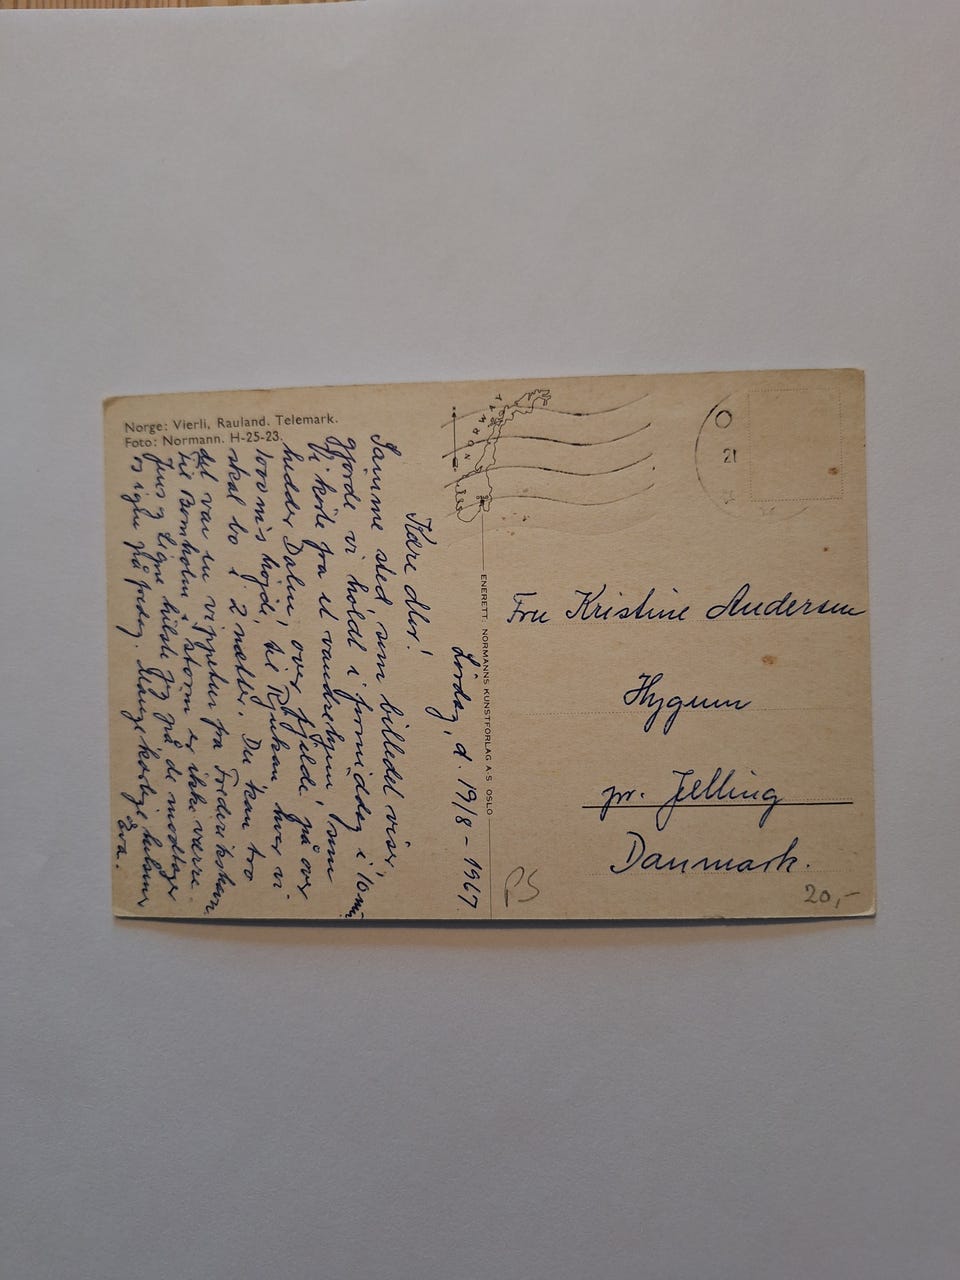 Norge: Vierli, Rauland. Telemark.
Foto: Normann. H-25-23.
Lørdag, d. 19/8 - 1967.
Kære
Samme sted som billedet viser,
gjorde vi holdt i formiddag i 10 min.
Vi kørte fra et vandrehjem, som
hedder Dalen, over fjelde, på over
1000 m's højde, til Rjukan, hvor vi
skal bo i 2 nætter. Du kan tro
det var en vippetur fra Frederikshavn.
til Bornholm i storm er ikke værre.
Jens og Signe hilste jeg på de modtager
os igen på fredag. Mange kærlige hilsner
Eva.
NORWAY
ENERETT: NORMANNS KUNSTFORLAG A·S OSLO
O
21
Fru Kristine Andersen
Hygum
pr. Jelling
Danmark.
PS
20,-